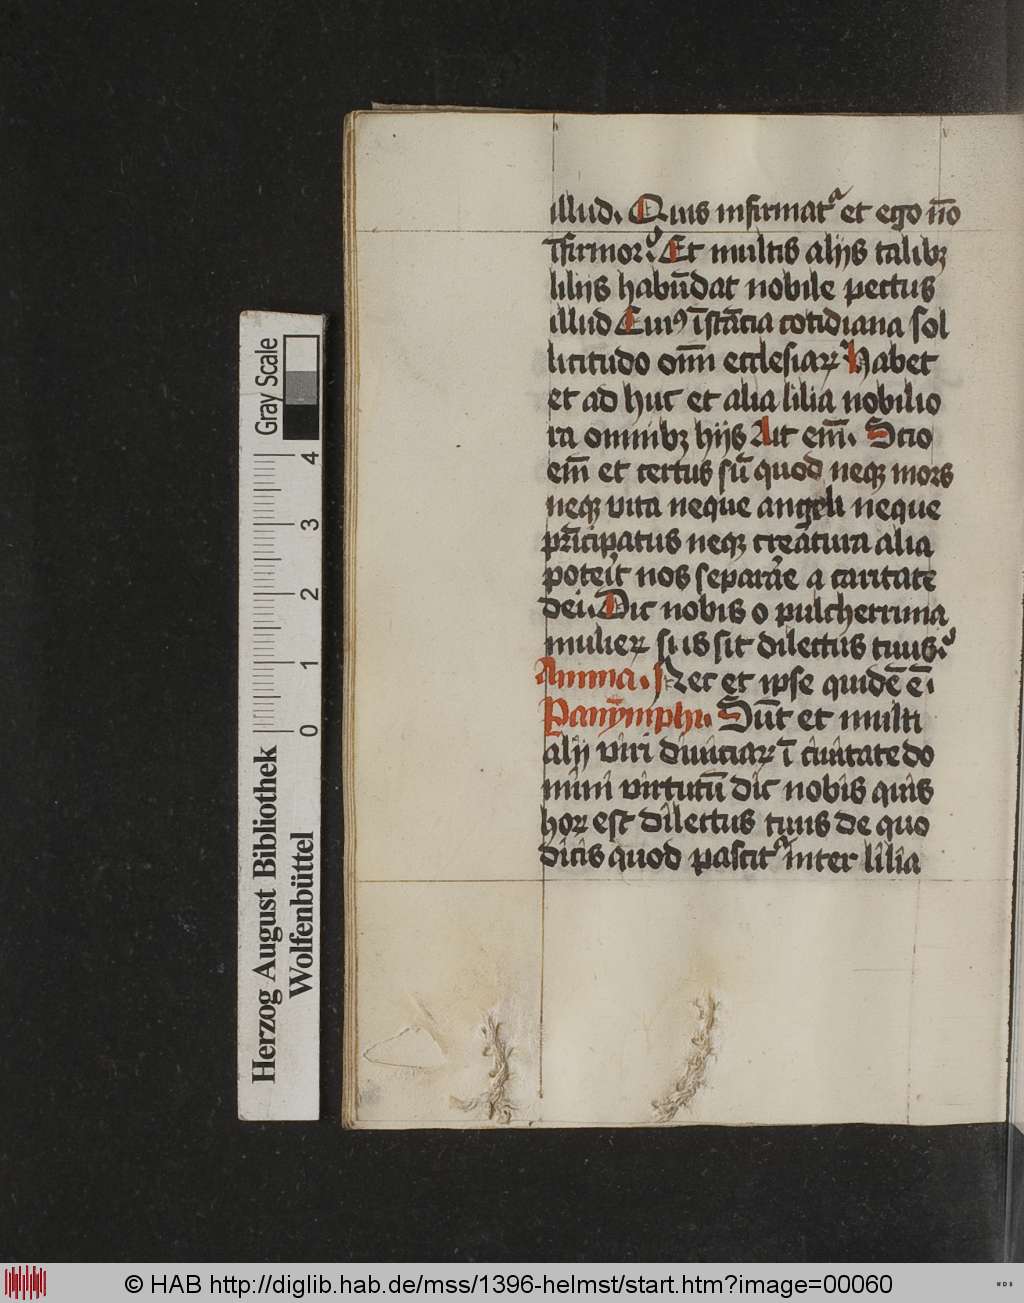 illud. Quis infirmatᷣ et ego no̅
i̅firmorᷣ. Et multis alijs talibꝫ
lilijs habu̅dat nobile pectus
illud Cuiꝰ i̅sta̅cia cotidiana sol
licitudo om̅i ecclesiaꝝ habet
et ad huc et alia lilia nobilio
ra omnibꝫ hijs Ait em̅. Scio
em̅ et certus su̅ quod neqꝫ mors
neqꝫ vita neque angeli neque
pri̅cipatus neqꝫ creatura alia
poterit nos separare a caritate
dei. Dic nobis o pulcherrima
mulieꝝ si is sit dilectus tuus.
Anima. Nec et ipse quide̅ e̅.
Pany̅mphi. Su̅t et multi
alij viri diuiciaꝝ i̅ ciuitate do
mini virtutu̅ dic nobis quis
hoꝝ est dilectus tuus de quo
dicis quod pascitᷣ inter lilia
Gray Scale
0 1 2 3 4
Herzog August Bibliothek
Wolfenbüttel
© HAB http://diglib.hab.de/mss/1396-helmst/start.htm?image=00060